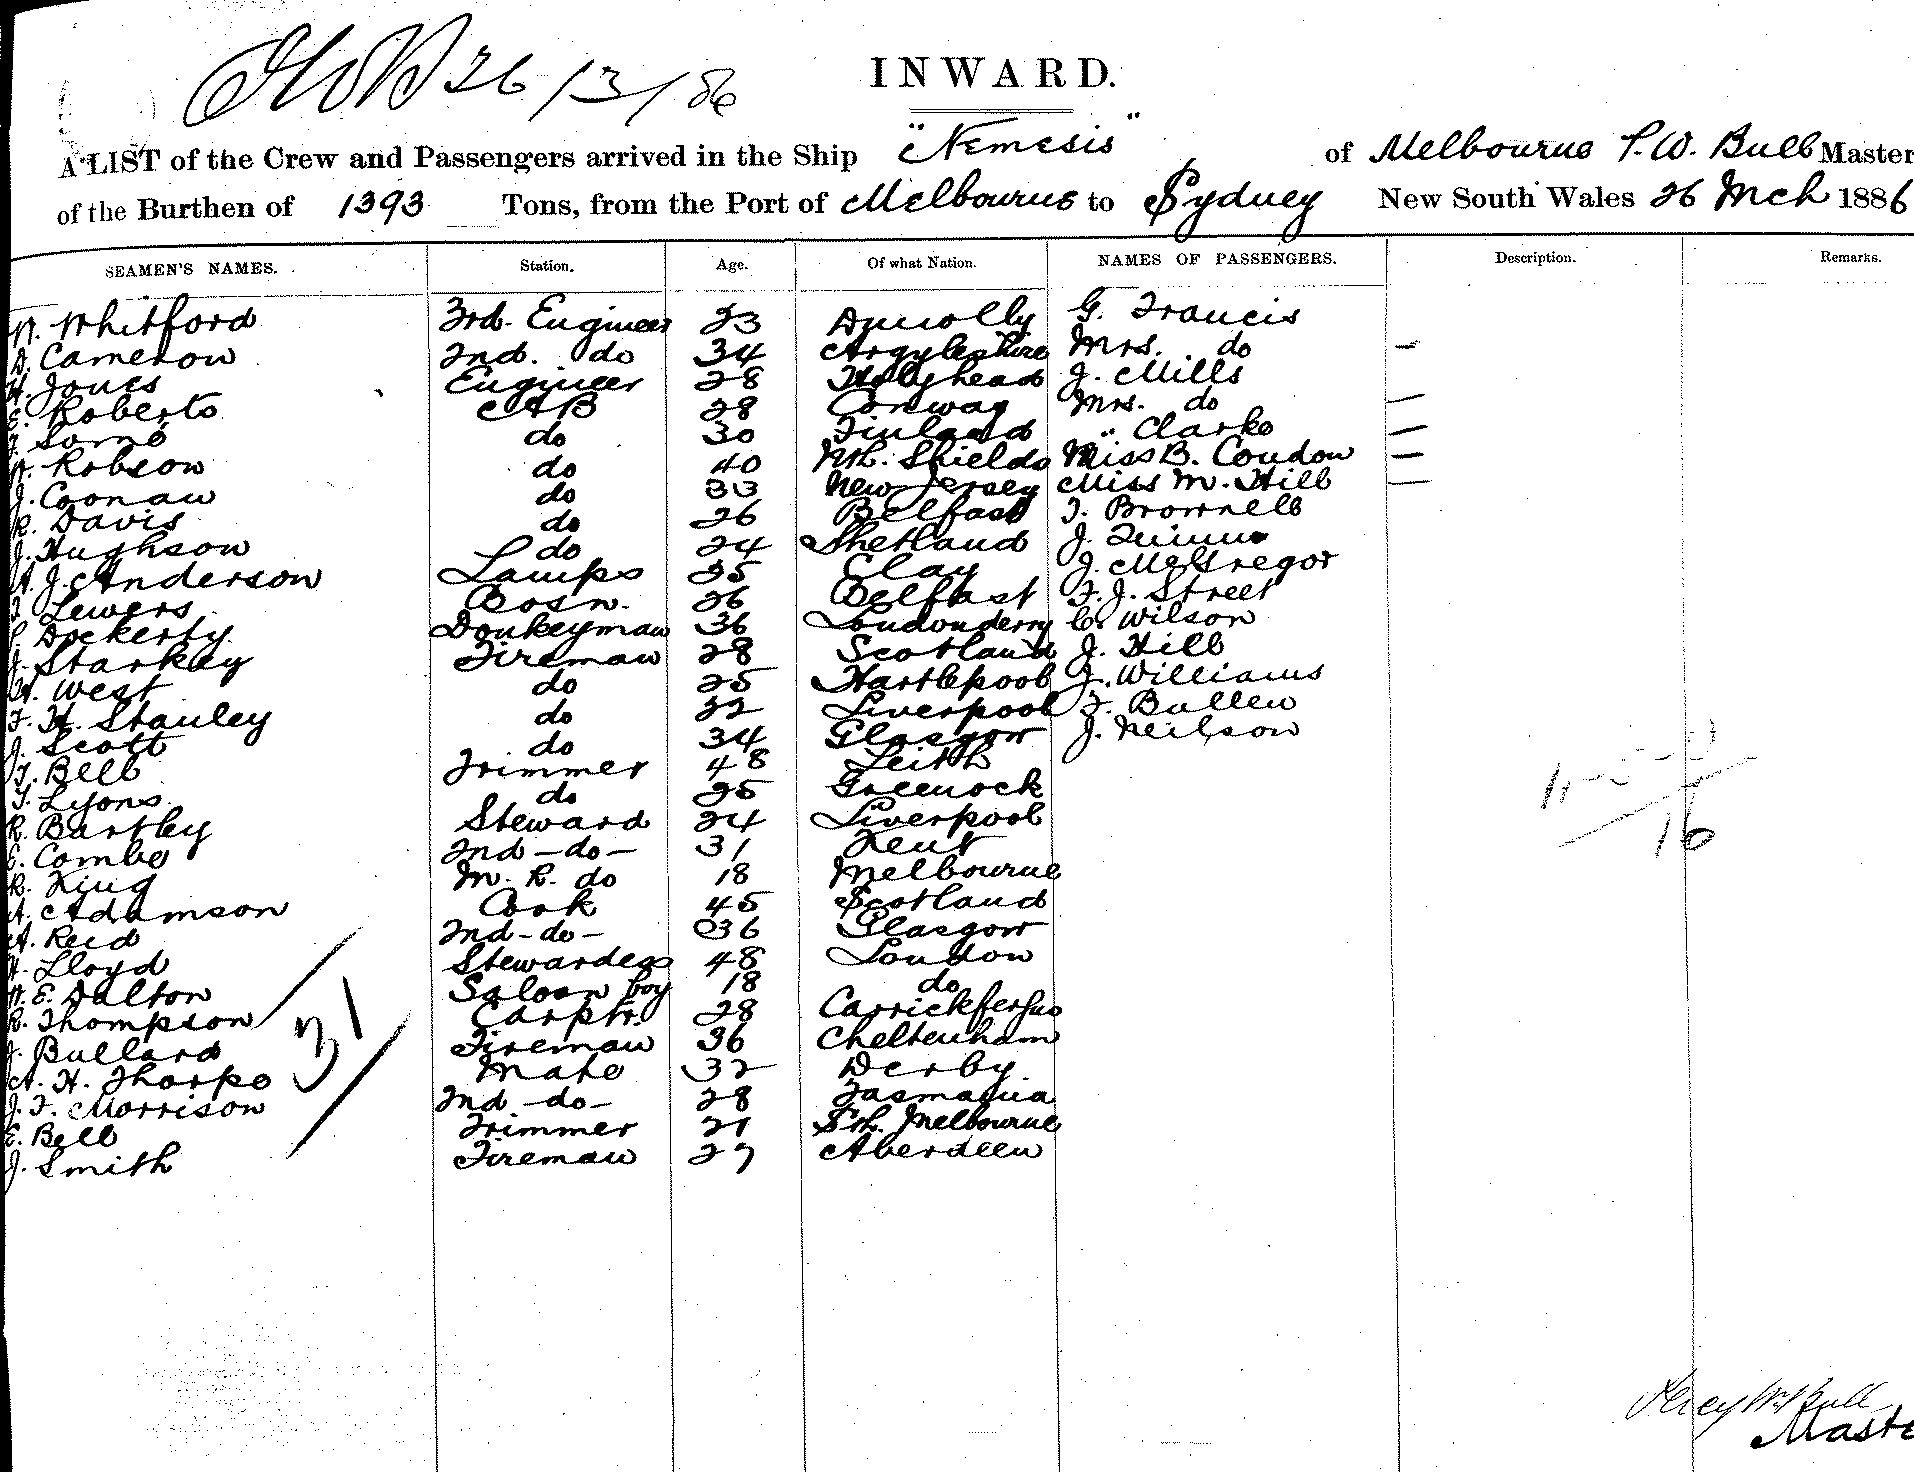 26/3/86
INWARD.
A LIST of the Crew and Passengers arrived in the Ship "Nemesis" of Melbourne P. W. Bull Master
of the Burthen of 1393 Tons, from the Port of Melbourne to Sydney New South Wales 26 Mch 1886
SEAMEN'S NAMES. Station. Age. Of what Nation. NAMES OF PASSENGERS. Description. Remarks.
W. Whitford 3rd. Engineer 23 Dunolly G. Francis
D. Cameron 2nd. do 34 Argyleshire Mrs. do —
H. Jones Engineer 28 Holyhead J. Mills
E. Roberts AB 28 Conway Mrs. do —
do 30 Finland " Clarke —
W. Robson do 40 Nth. Shields Miss B. Condon —
J. Coonan do 33 New Jersey Miss M. Hill —
R. Davis do 26 Belfast T. Brownell
J. Hughson do 24 Shetland J.
A. J. Anderson Lamps 25 J. McGregor
Lewers Bosn. 26 Belfast F. J. Street
Dockerty Donkeyman 36 Londonderry C. Wilson
J. Starkey Fireman 28 Scotland J. Hill
West do 25 Hartlepool J. Williams
F. H. Stanley do 32 Liverpool F. Bullen
J. Scott do 34 Glasgow J. Neilson
T. Bell Trimmer 48 Leith
T. Lyons do 25 Greenock
R. Bartley Steward 24 Liverpool
Combe 2nd - do - 31 Kent
R. King M. R. do 18 Melbourne
A. Adamson Cook 45 Scotland
A. Reid 2nd - do - 36 Glasgow
Lloyd Stewardess 48 London
W. E. Dalton Saloon boy 18 do
R. Thompson Carptr. 28 Carrickfergus
J. Bullard Fireman 36 Cheltenham
A. H. Thorpe Mate 32 Derby
J. F. Morrison 2nd - do - 28 Tasmania
E. Bell Trimmer 21 Sth. Melbourne
J. Smith Fireman 27 Aberdeen
31
11 - 5 -
16
Percy W. Bull
Maste